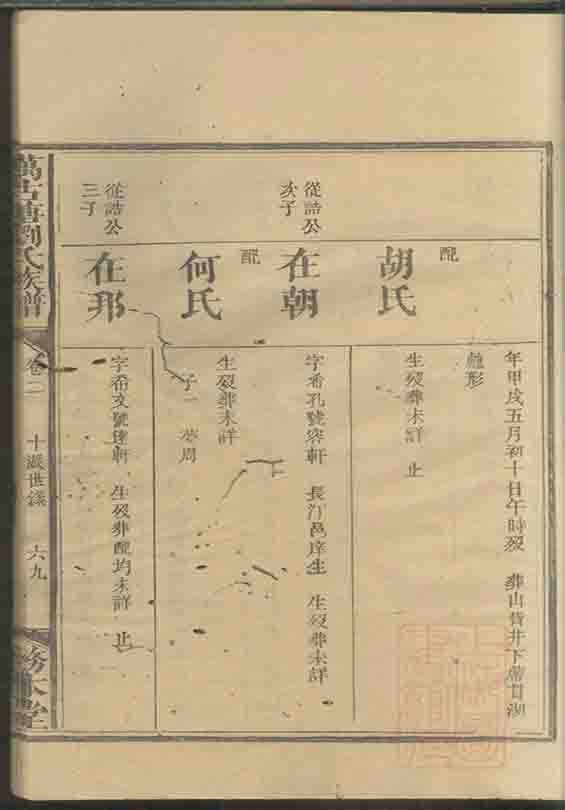 年甲戌五月初十日午時歿　葬山背井下
形
配
胡氏
生歿葬未詳　止
從誥公
次子
在朝
字希孔號容軒　長汀邑庠生　生歿葬未詳
配
何氏
生歿葬未詳
子一　夢周
從誥公
三子
在邦
字希文號達軒　生歿葬配均未詳　止
萬古塘劉氏族譜
卷二
十派世系
六九
務本堂